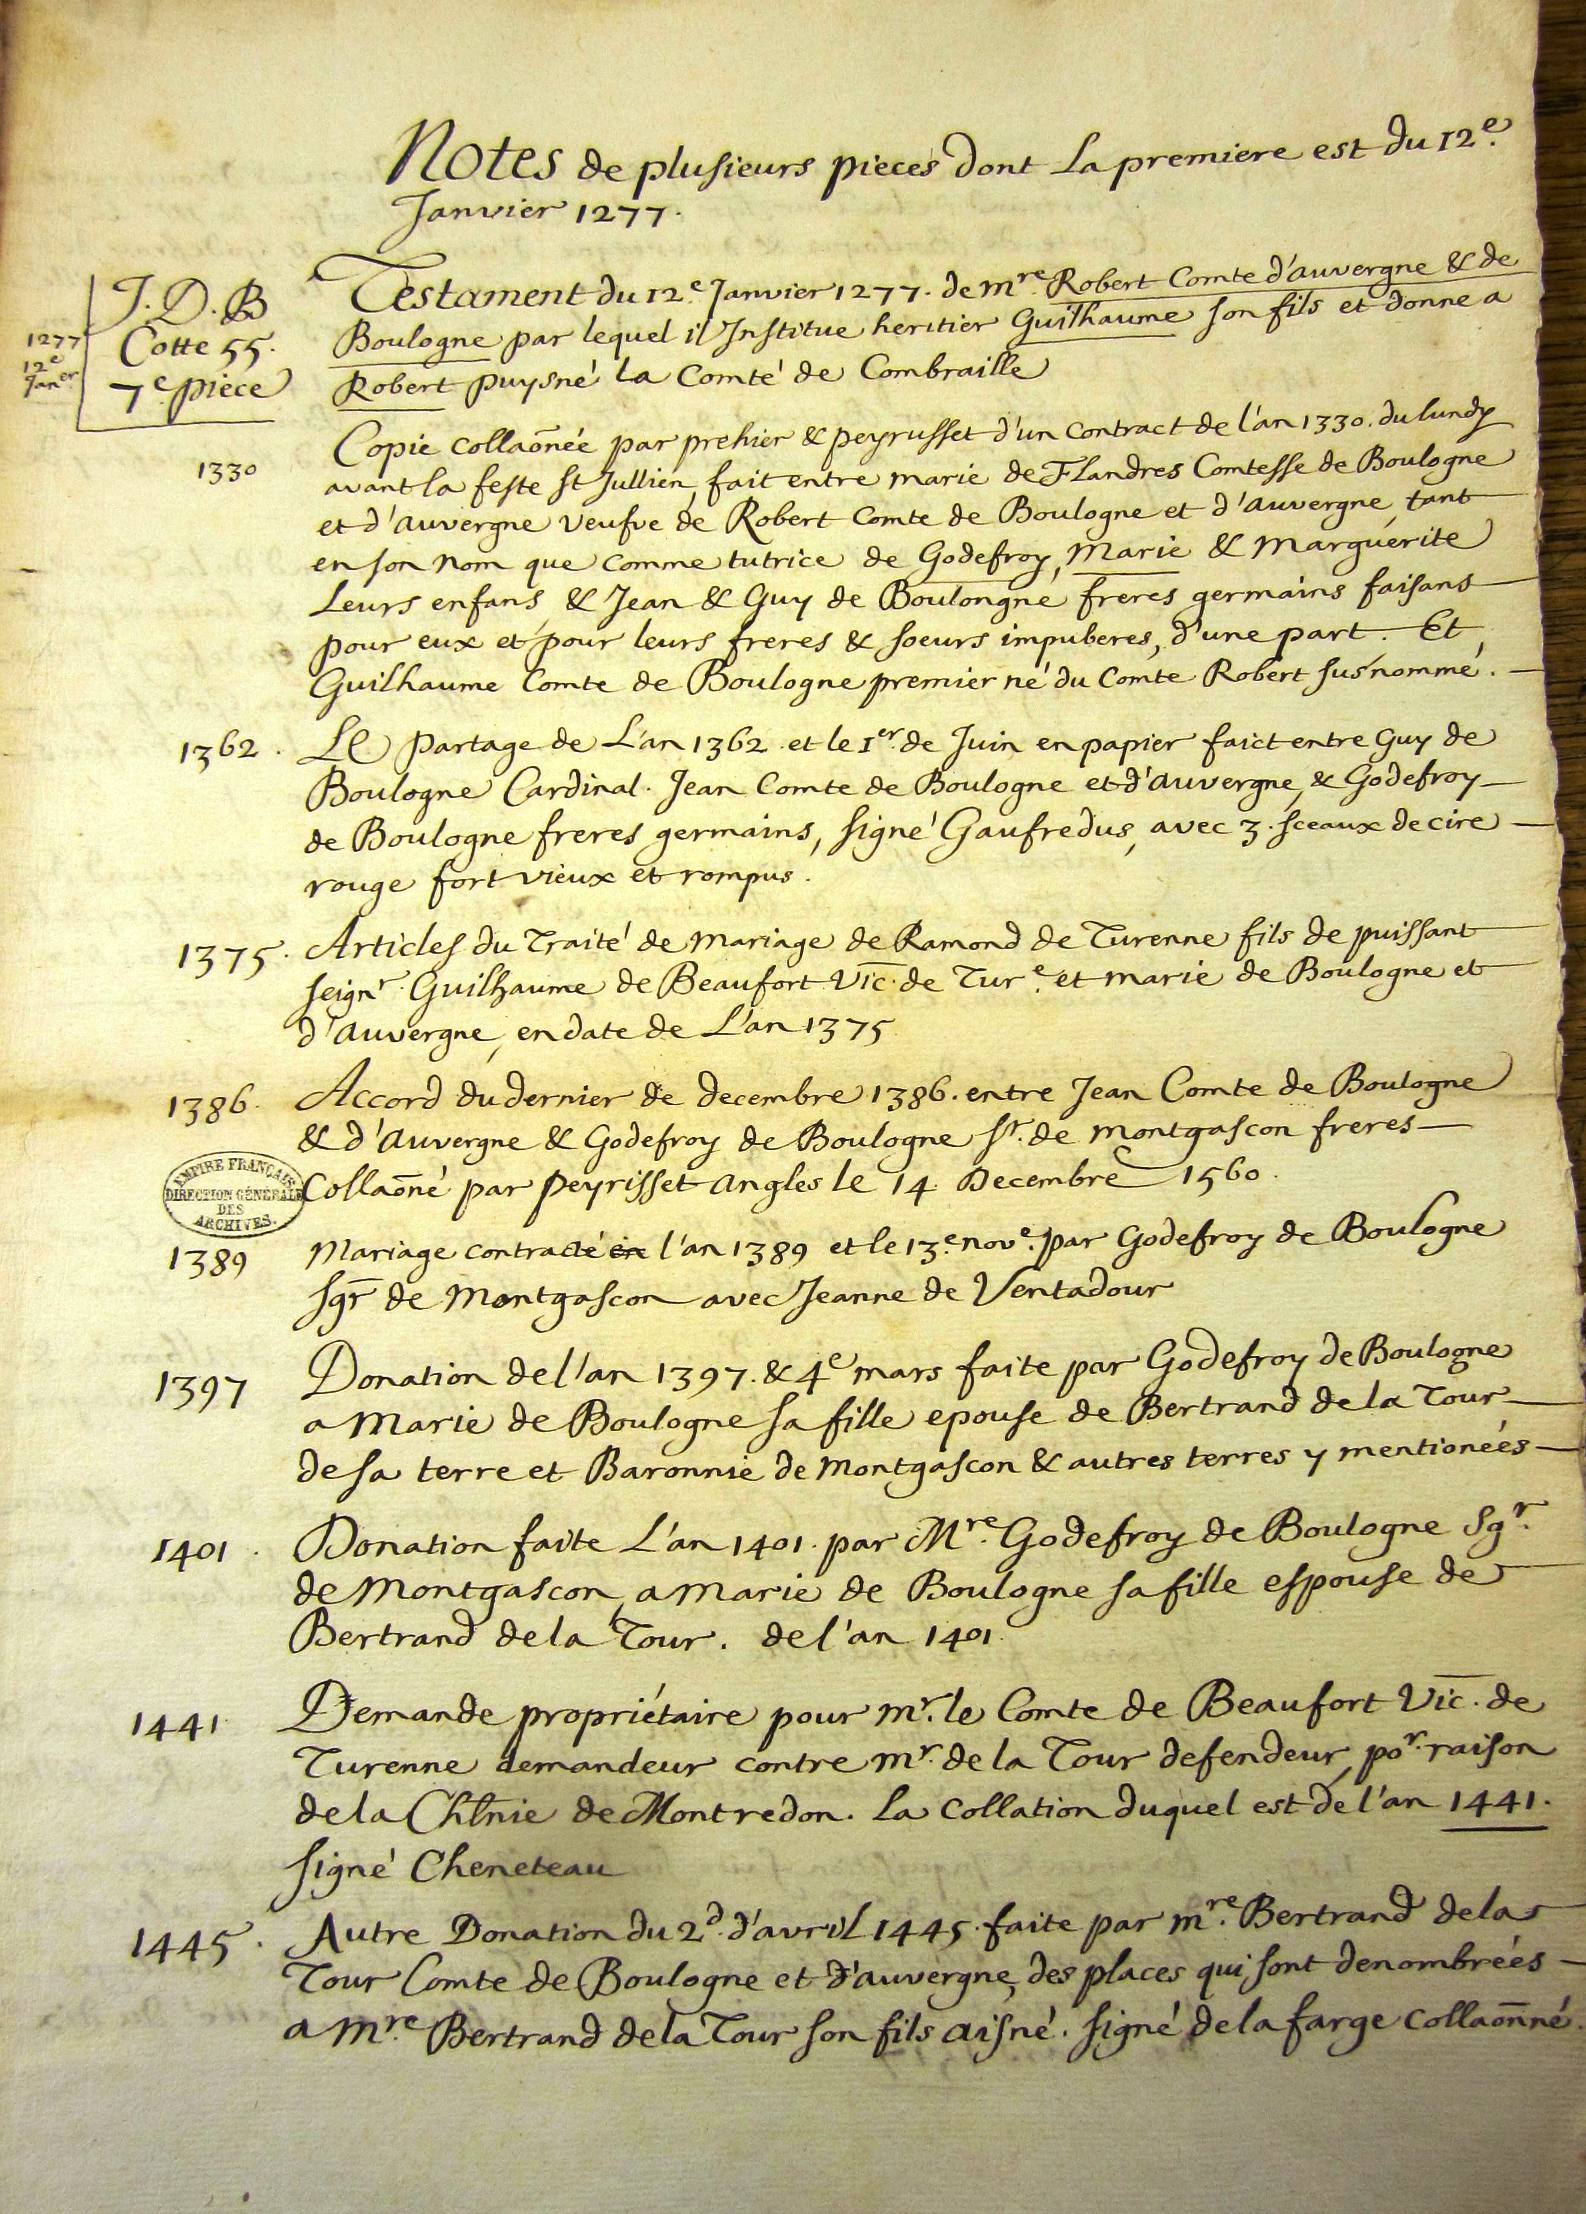 Notes de plusieurs pieces dont La premiere est du 12.e
Janvier 1277.
1277
12e
Janer
J. D. B
Cotte 55.
7e piece
Testament du 12.e Janvier 1277. de mre. Robert Comte d'auvergne & de
Boulogne par lequel il Institue heritier Guilhaume son fils et donne a
Robert puysné la Comté de Combraille
1330
Copie collaōnée par prehier & peyrusset d'un contract de l'an 1330. du lundy
avant la feste st Jullien, fait entre marie de Flandres Comtesse de Boulogne
et d'auvergne veufve de Robert Comte de Boulogne et d'auvergne, tant
en son nom que comme tutrice de Godefroy, Marie & Marguerite
Leurs enfans, & Jean & Guy de Boulongne freres germains faisans
pour eux et pour leurs freres & soeurs impuberes, d'une part. Et
Guilhaume Comte de Boulogne premier né du Comte Robert susnommé.
1362.
Le partage de L'an 1362. et le 1er. de Juin en papier faict entre Guy de
Boulogne Cardinal. Jean Comte de Boulogne et d'auvergne, & Godefroy
de Boulogne freres germains, signé Gaufredus, avec 3. sceaux de cire
rouge fort vieux et rompus.
1375.
Articles du Traité de mariage de Ramond de Turenne fils de puissant
seignr. Guilhaume de Beaufort Vic. de Tur.e et marie de Boulogne et
d'Auvergne, en date de L'an 1375
1386.
Accord du dernier de decembre 1386. entre Jean Comte de Boulogne
& d'Auvergne & Godefroy de Boulogne sr. de montgascon freres
EMPIRE FRANÇAIS
DIRECTION GÉNÉRALE
DES
ARCHIVES.
Collaōné par peyrisset angles le 14. Decembre 1560.
1389
Mariage contracté en l'an 1389 et le 13.e nov.e par Godefroy de Boulogne
sgr de Montgascon avec Jeanne de Ventadour
1397
Donation de l'an 1397. & 4e mars faite par Godefroy de Boulogne
a Marie de Boulogne sa fille epouse de Bertrand de la Tour
de sa terre et Baronnie de Montgascon & autres terres y mentionées
1401.
Donation faite L'an 1401. par Mre. Godefroy de Boulogne Sgr.
de Montgascon, a Marie de Boulogne sa fille espouse de
Bertrand de la Tour. de l'an 1401.
1441
Demande propriétaire pour mr. le Comte de Beaufort Vic. de
Turenne demandeur contre mr. de la Tour defendeur, por. raison
de la Chl̄nie de Montredon. La collation duquel est de l'an 1441.
signé Cheneteau
1445.
Autre Donation du 2.d d'avril 1445. faite par mre. Bertrand de la
Tour Comte de Boulogne et d'auvergne, des places qui sont denombrées
a mre. Bertrand de la Tour son fils aisné. signé de la farge collaōnné.